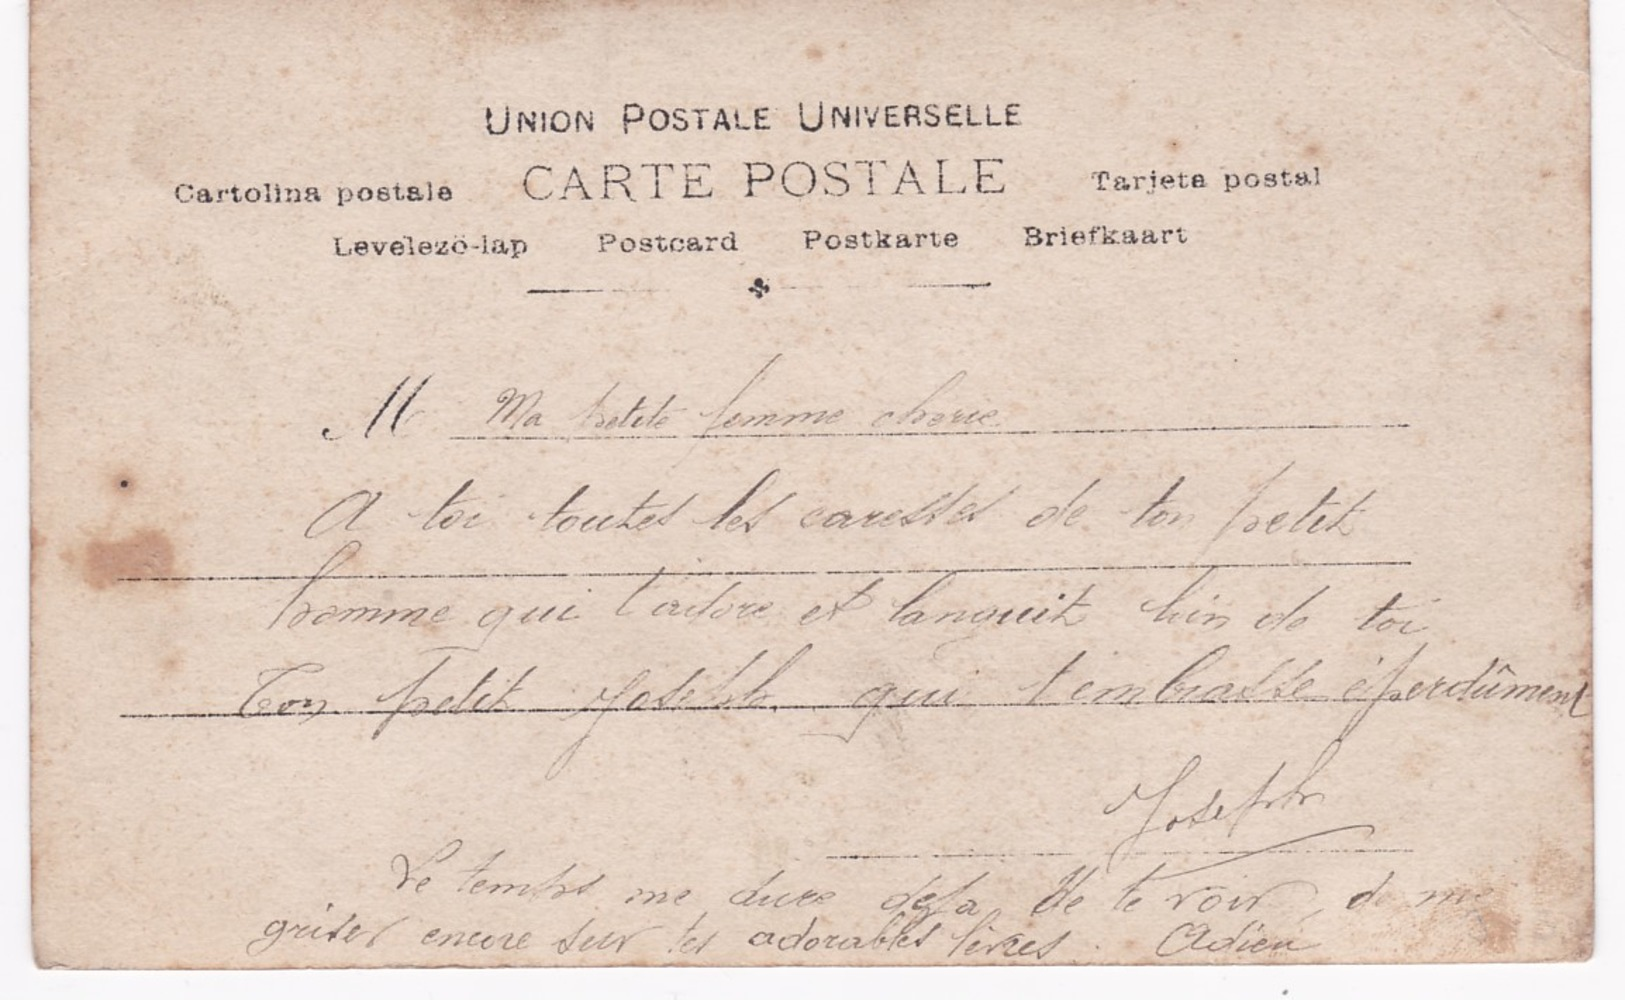 UNION POSTALE UNIVERSELLE
CARTE POSTALE
Cartolina postale Tarjeta postal
Levelezö-lap Postcard Postkarte Briefkaart
M Ma petite femme cherie
A toi toutes les caresses de ton petit
homme qui t'adore et languit loin de toi
Ton petit Joseph qui t'embrasse éperdûment
Joseph
Le temps me dure deja de te voir, de me
griser encore sur tes adorables lèvres. Adieu